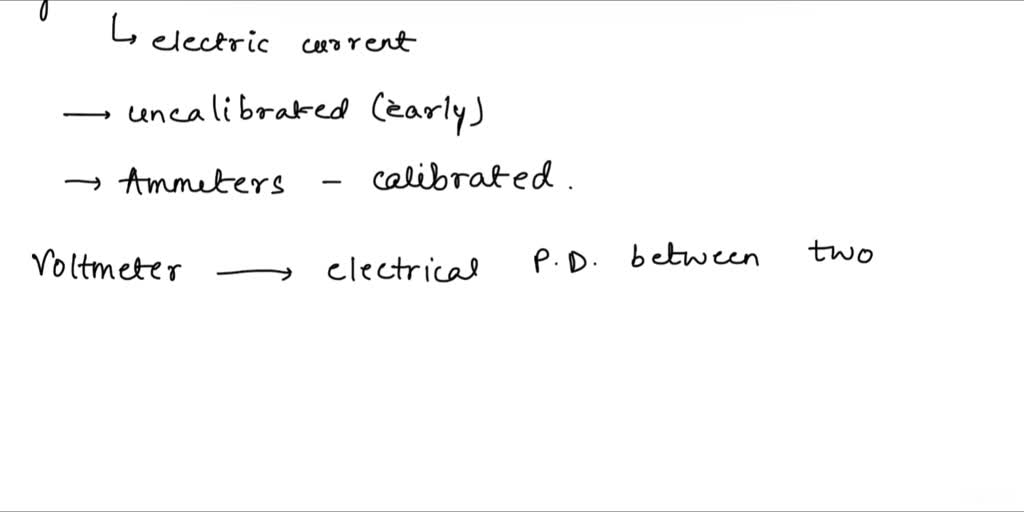 ↳ electric current
→ uncalibrated (early)
→ Ammeters - calibrated.
Voltmeter → electrical P.D. between two